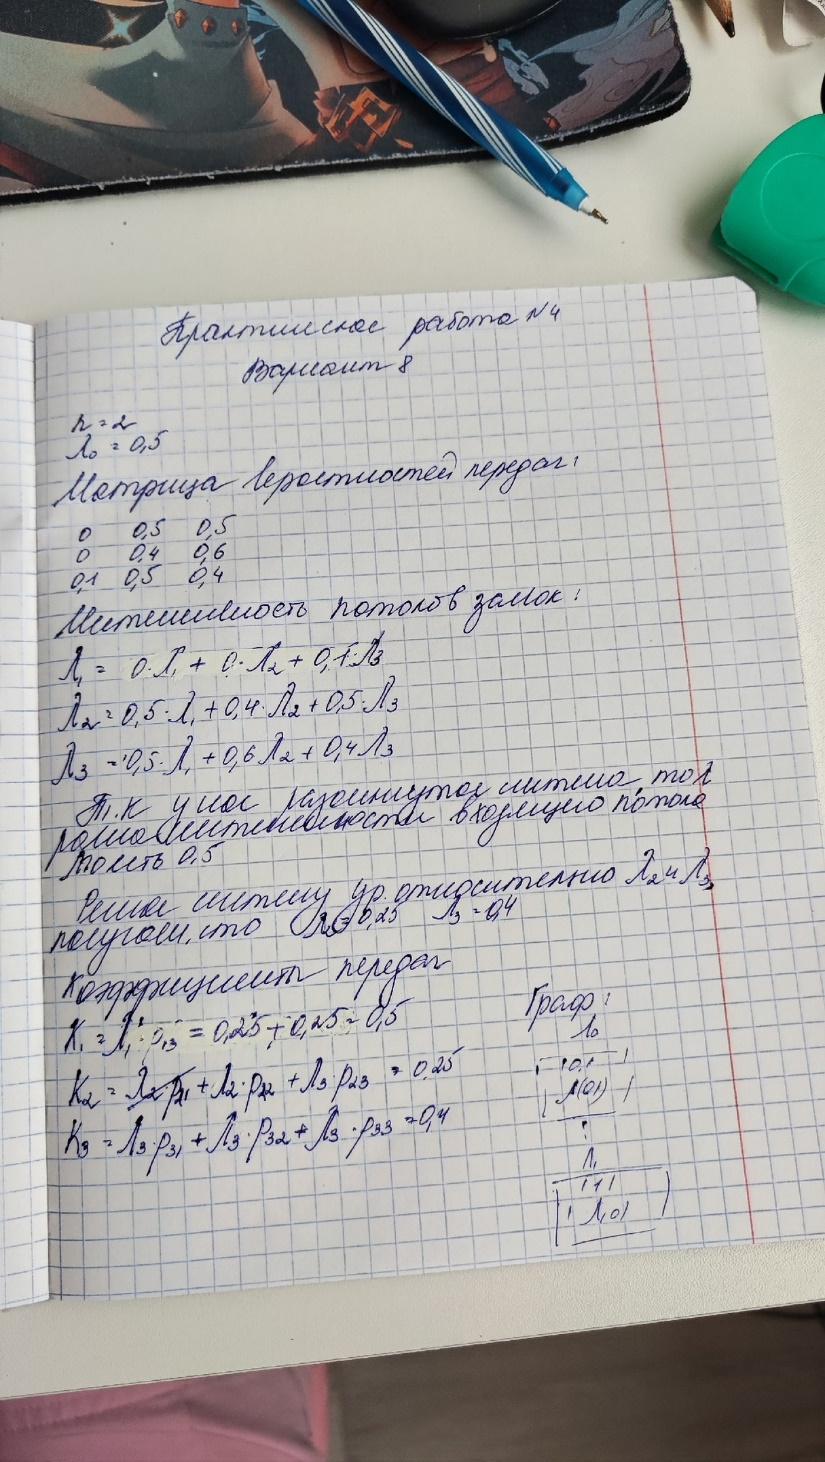 Практическое работа №4
Вариант 8
n = 2
λ₀ = 0,5
Матрица вероятностей передач:
0 0,5 0,5
0 0,4 0,6
0,1 0,5 0,4
Интенсивность потоков замок:
λ₁ = 0·λ₁ + 0·λ₂ + 0,1·λ₃
λ₂ = 0,5·λ₁ + 0,4·λ₂ + 0,5·λ₃
λ₃ = 0,5·λ₁ + 0,6λ₂ + 0,4λ₃
Т.к у нас разомкнутая система, то λ
равна интенсивности входящего потока
0.5
Решая систему ур. относительно λ₂ и λ₃,
получаем, что = 0,25 λ₃ = 0,4
Коэффициенты передач
K₁ = λ₁·p₁₃ = 0,25 + 0,25 = 0,5
K₂ = λ₂·p₂₁ + λ₂·p₂₂ + λ₃·p₂₃ = 0,25
K₃ = λ₃·p₃₁ + λ₃·p₃₂ + λ₃·p₃₃ = 0,4
Граф:
λ₀
0,1
λ(0,1)
λ₁